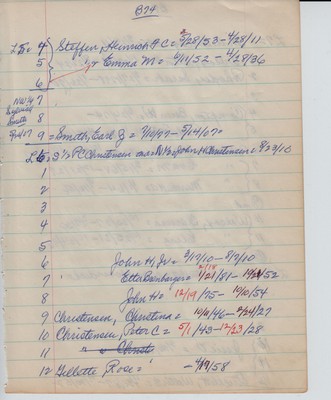 B74
L5 = 4 Steffen, Heinrich F C = 2/28/53 - 4/28/11
5 " Emma M = 4/14/52 - 4/28/36
6
NW¼ 7
8
5/14/07 9 = Smith, Earl Z = 7/10/97 - 5/14/07
L6 = S½ P C Christensen and N½ John H Christensen = 8/23/10
1
2
3
4
5
6 John H, Jr = 3/17/10 - 8/9/10
7 Etta Bamberger =
8 John H = 12/19/75 - 10/10/54
9 Christensen, Christina = 10/11/46 - 2/24/27
10 Christensen, Peter C = 5/1/43 - 12/23/28
11 " = Christ
12 Gillette, Rose = - 4/9/58